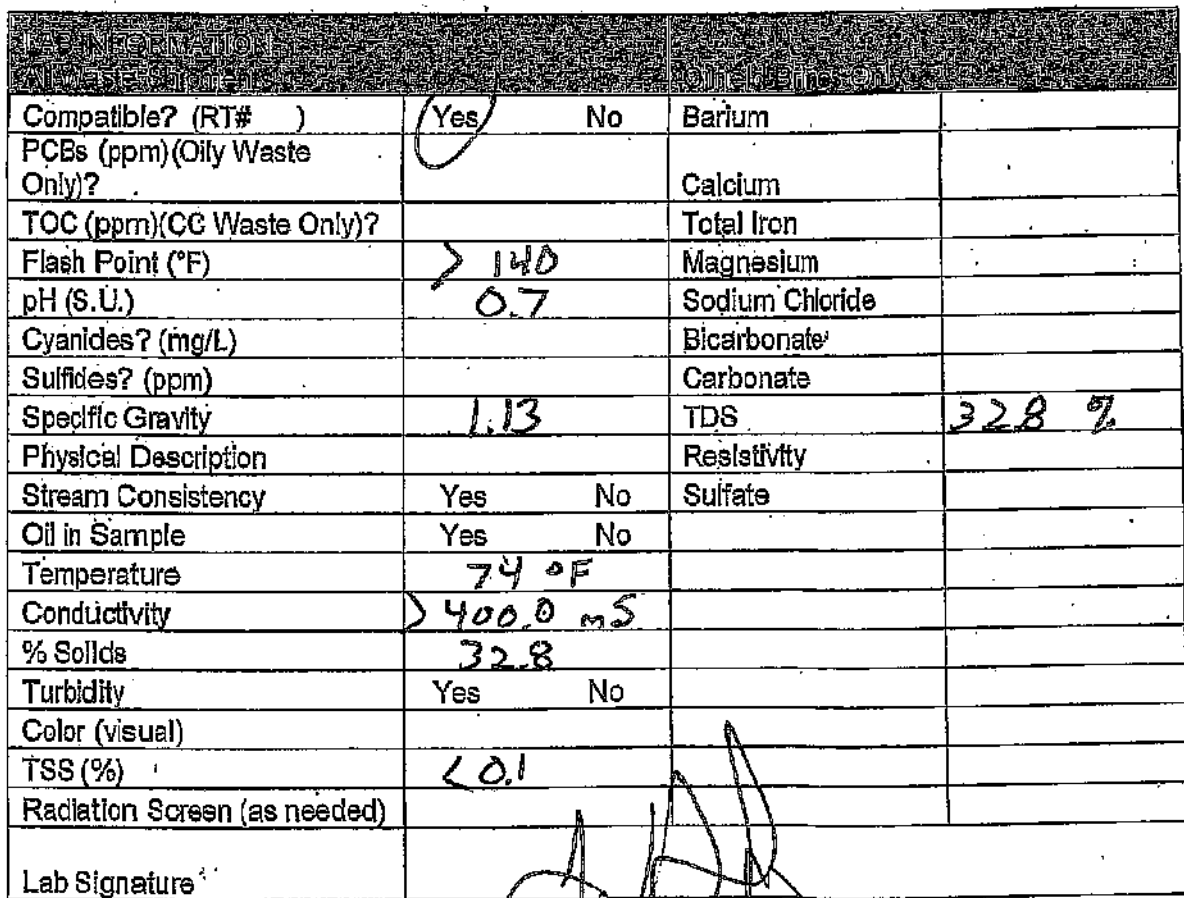 LAB INFORMATION
All Waste Shipments Oilfield Brines Only
Compatible? (RT# ) Yes No Barium
PCBs (ppm)(Oily Waste
Only)? Calcium
TOC (ppm)(CC Waste Only)? Total Iron
Flash Point (°F) > 140 Magnesium
pH (S.U.) 0.7 Sodium Chloride
Cyanides? (mg/L) Bicarbonate
Sulfides? (ppm) Carbonate
Specific Gravity 1.13 TDS 32.8 %
Physical Description Resistivity
Stream Consistency Yes No Sulfate
Oil in Sample Yes No
Temperature 74 °F
Conductivity > 400.0 mS
% Solids 32.8
Turbidity Yes No
Color (visual)
TSS (%) < 0.1
Radiation Screen (as needed)
Lab Signature